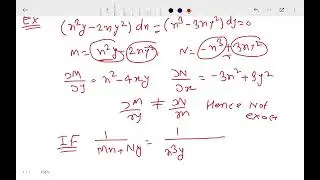 Ex (x²y - 2xy²) dx = (x³ - 3xy²) dy = 0
M = x²y - 2xy² N = -x³ + 3xy²
∂M/∂y = x² - 4xy ∂N/∂x = -3x² + 3y²
∂M/∂y ≠ ∂N/∂x Hence not exact
IF 1/(Mx + Ny) = 1/(x³y